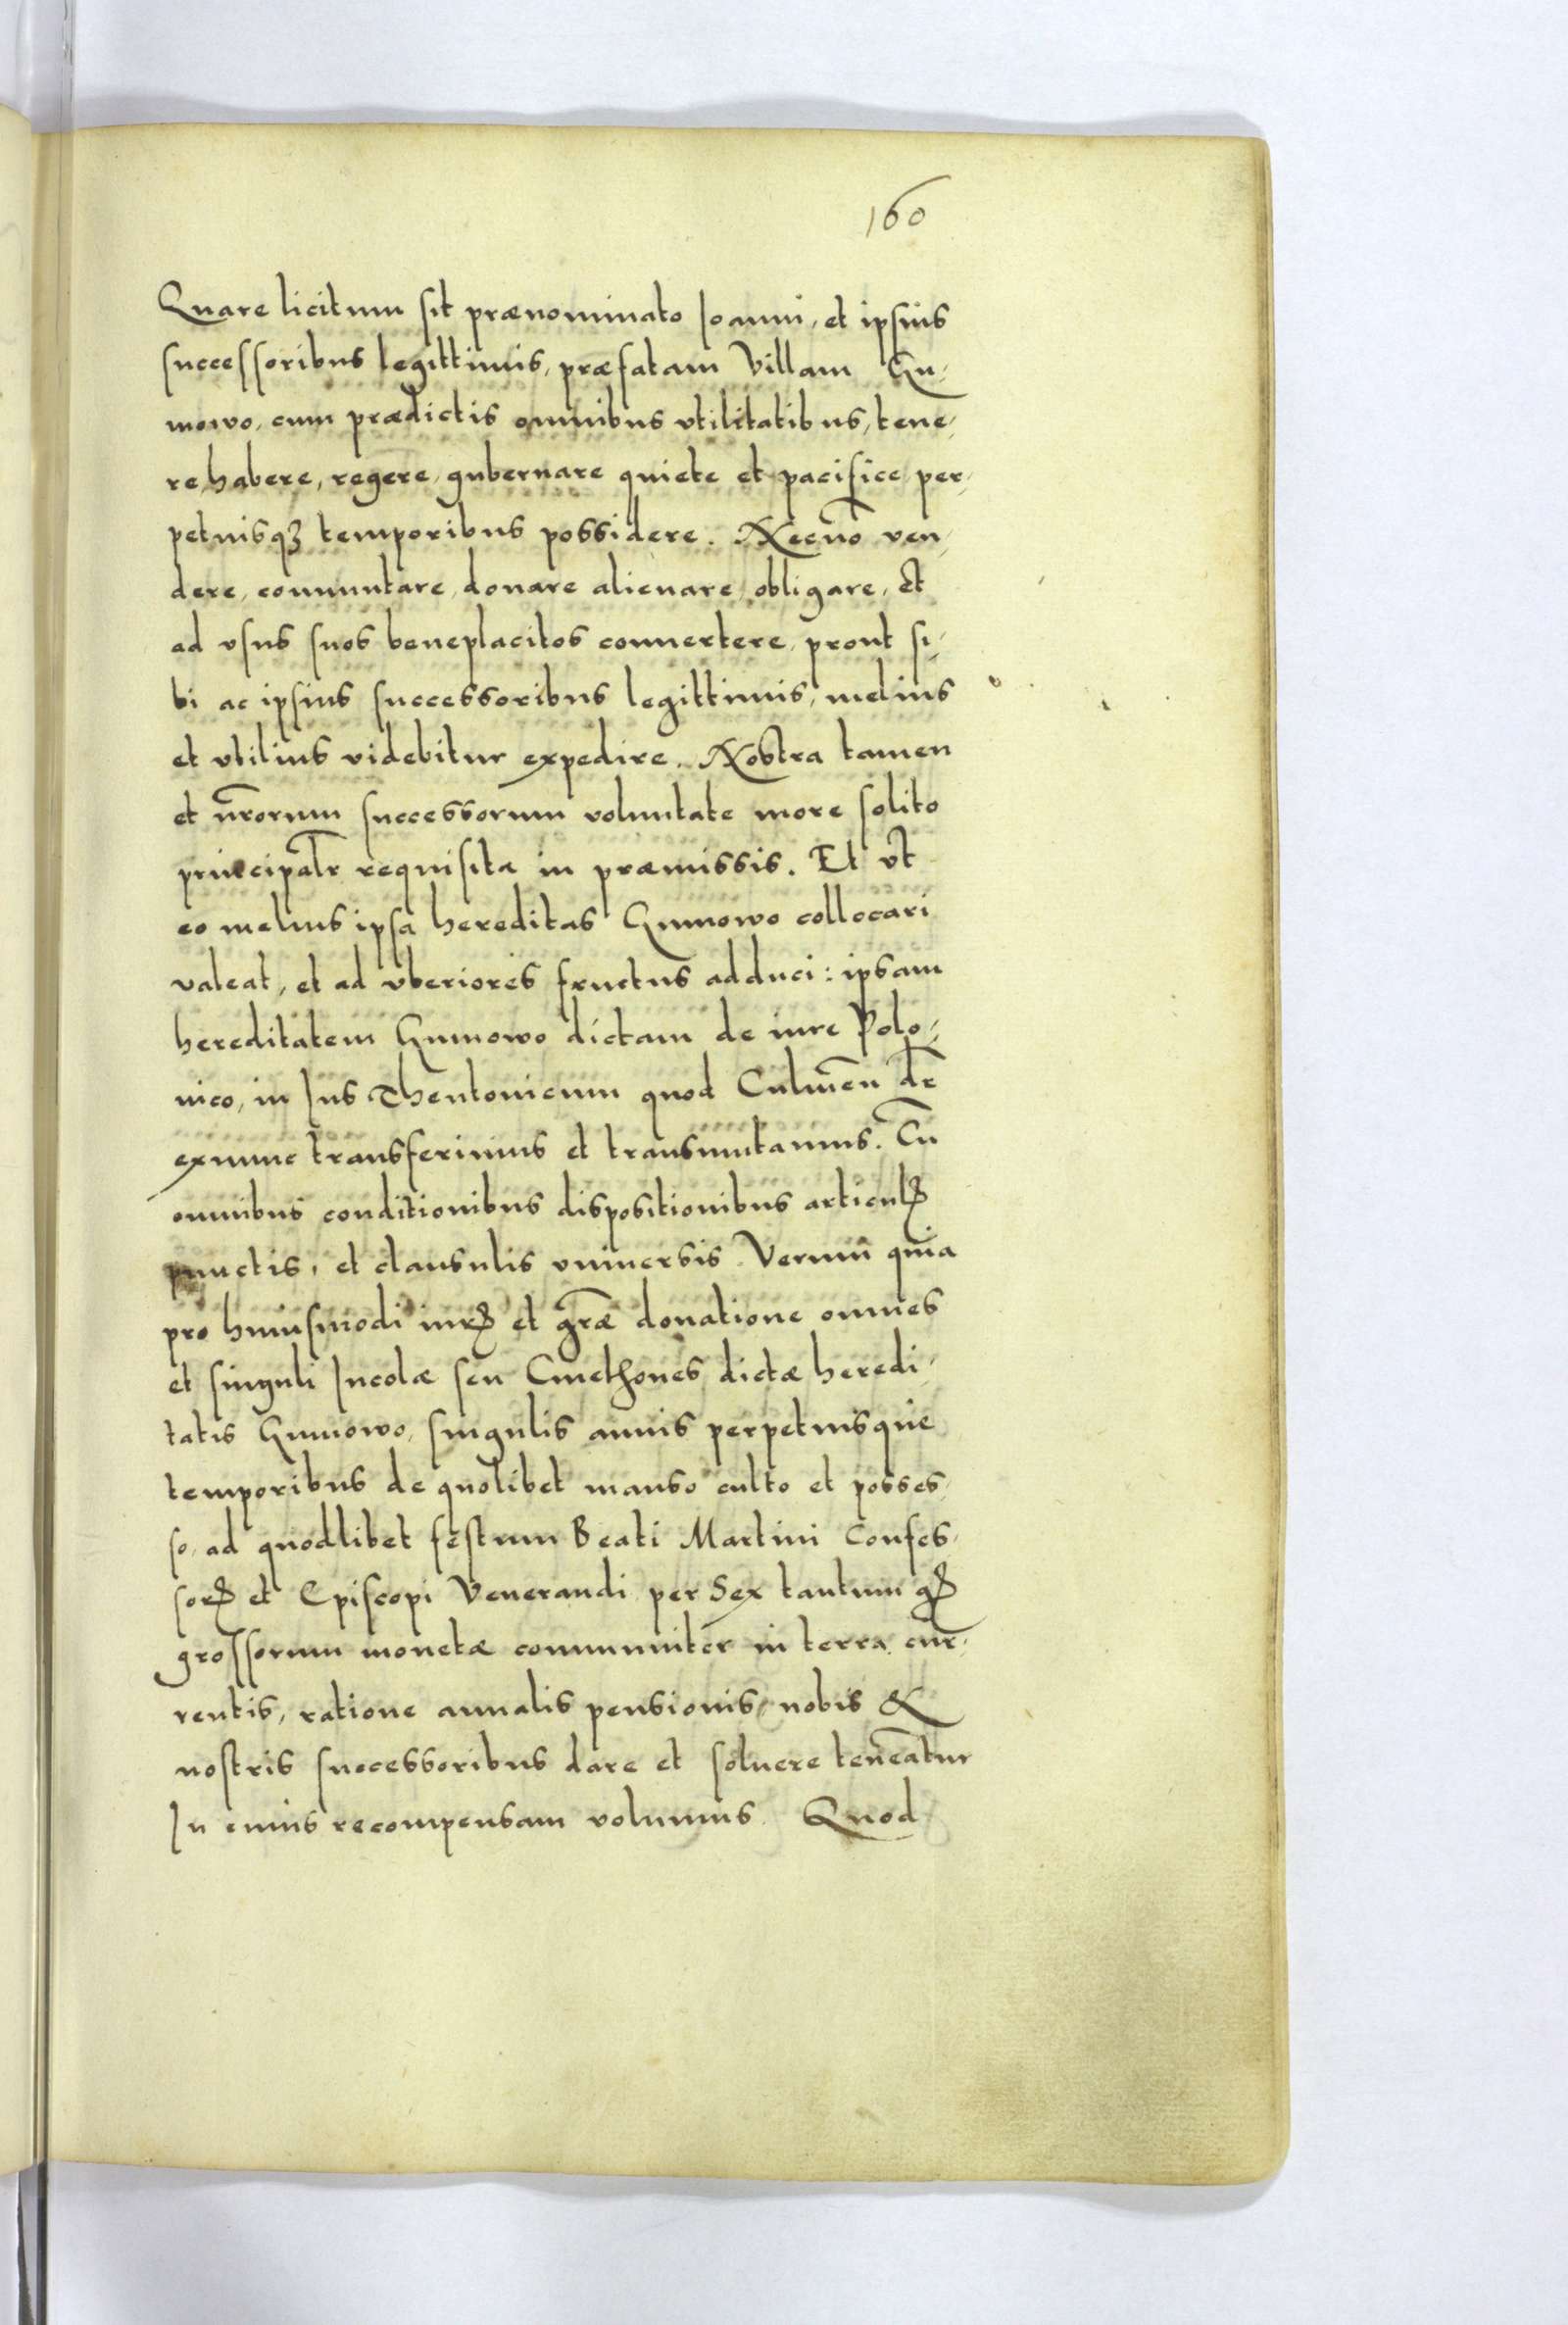 160
Quare licitum sit prænominato Joanni, et ipsius
successoribus legittimis, præfatam Villam Gu-
mowo, cum prædictis omnibus vtilitatibus, tene-
re habere, regere, gubernare quiete et pacifice, per-
petuisqꝫ temporibus possidere. Necnõ ven-
dere, commutare, donare alienare, obligare, Et
ad vsus suos beneplacitos conuertere, prout si-
bi ac ipsius successoribus legittimis, melius
et vtilius videbitur expedire. Nostra tamen
et nr̃orum successorum voluntate more solito
principalr̃ requisita in præmissis. Et vt
eo melius ipsa hereditas Gumowo collocari
valeat, et ad vberiores fructus adduci: ipsam
hereditatem Gumowo dictam de iure Polo-
nico, in Jus Theutonicum quod Culmeñ dr̃
exnunc transferimus et transmutamus. Cũ
omnibus conditionibus dispositionibus articulꝭ
punctis, et clausulis vniuersis. Verum quia
pro huiusmodi iurꝭ et gr̃æ donatione omnes
et singuli Incolæ seu Cmethones dictæ heredi-
tatis Gumowo, singulis annis perpetuisque
temporibus de quolibet manso culto et posses-
so, ad quodlibet festum Beati Martini Confes-
sorꝭ et Episcopi Venerandi per Sex tantum
grossorum monetæ communiter in terra cur-
rentis, ratione annalis pensionis, nobis &
nostris successoribus dare et soluere teneãtur
In cuius recompensam volumus. Quod